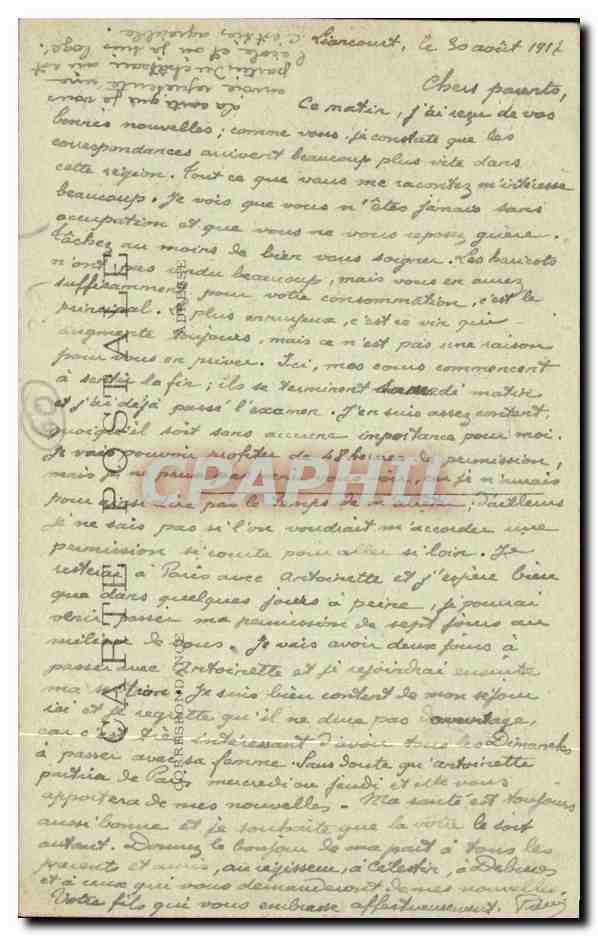 Liancourt, le 30 août 1917
Chers parents,
Ce matin, j'ai reçu de vos
bonnes nouvelles; comme vous, je constate que les
correspondances arrivent beaucoup plus vite dans
cette région. Tout ce que vous me racontez m'intéresse
beaucoup. Je vois que vous n'êtes jamais sans
occupation et que vous ne vous reposez guère.
Tâchez au moins de bien vous soigner. Les haricots
n'ont pas rendu beaucoup, mais vous en aurez
suffisamment pour votre consommation, c'est le
principal. Le plus ennuyeux, c'est ce vin qui
augmente toujours, mais ce n'est pas une raison
pour vous en priver. Ici, mes cours commencent
à sentir la fin; ils se terminent samedi matin
et j'ai déjà passé l'examen. J'en suis assez content,
quoiqu'il soit sans aucune importance pour moi.
Je vais pouvoir profiter de 48 heures de permission,
mais je ne pourrai pas vous voir, car je n'aurais
pour ainsi dire pas le temps de ; d'ailleurs
je ne sais pas si l'on voudrait m'accorder une
permission si courte pour aller si loin. Je
resterai à Paris avec Antoinette et j'espère bien
que dans quelques jours à peine, je pourrai
venir passer ma permission de sept jours au
milieu de vous. Je vais avoir deux jours à
passer avec Antoinette et je rejoindrai ensuite
ma section. Je suis bien content de mon séjour
ici et je regrette qu'il ne dure pas davantage,
car c'est très intéressant d'avoir tous les Dimanches
à passer avec sa femme. Sans doute qu'Antoinette
partira de Paris mercredi ou jeudi et elle vous
apportera de mes nouvelles. Ma santé est toujours
aussi bonne et je souhaite que la vôtre le soit
autant. Donnez le bonjour de ma part à tous les
parents et amis, au régisseur, à Célestin, à
et à ceux qui vous demanderont de mes nouvelles.
Votre fils qui vous embrasse affectueusement.
La carte que je vous
envoie représente une
partie du château qui est
l'école et où je suis logé.
C'est très agréable.
CARTE POSTALE
CORRESPONDANCE
ADRESSE
CPAPHIL